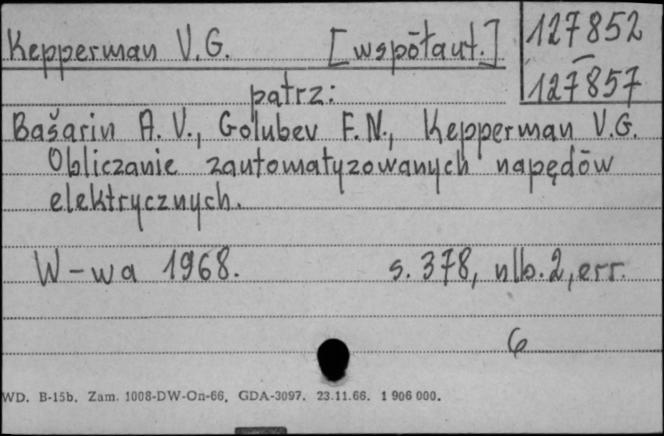 Kepperman V.G. [współaut.] 127852
–
127857
patrz:
Bašarin A.V., Golubev F.N., Kepperman V.G.
Obliczanie zautomatyzowanych napędów
elektrycznych.
W-wa 1968. s. 378, nlb. 2, err.
6
WD. B-15b. Zam. 1008-DW-On-66. GDA-3097. 23.11.66. 1 906 000.